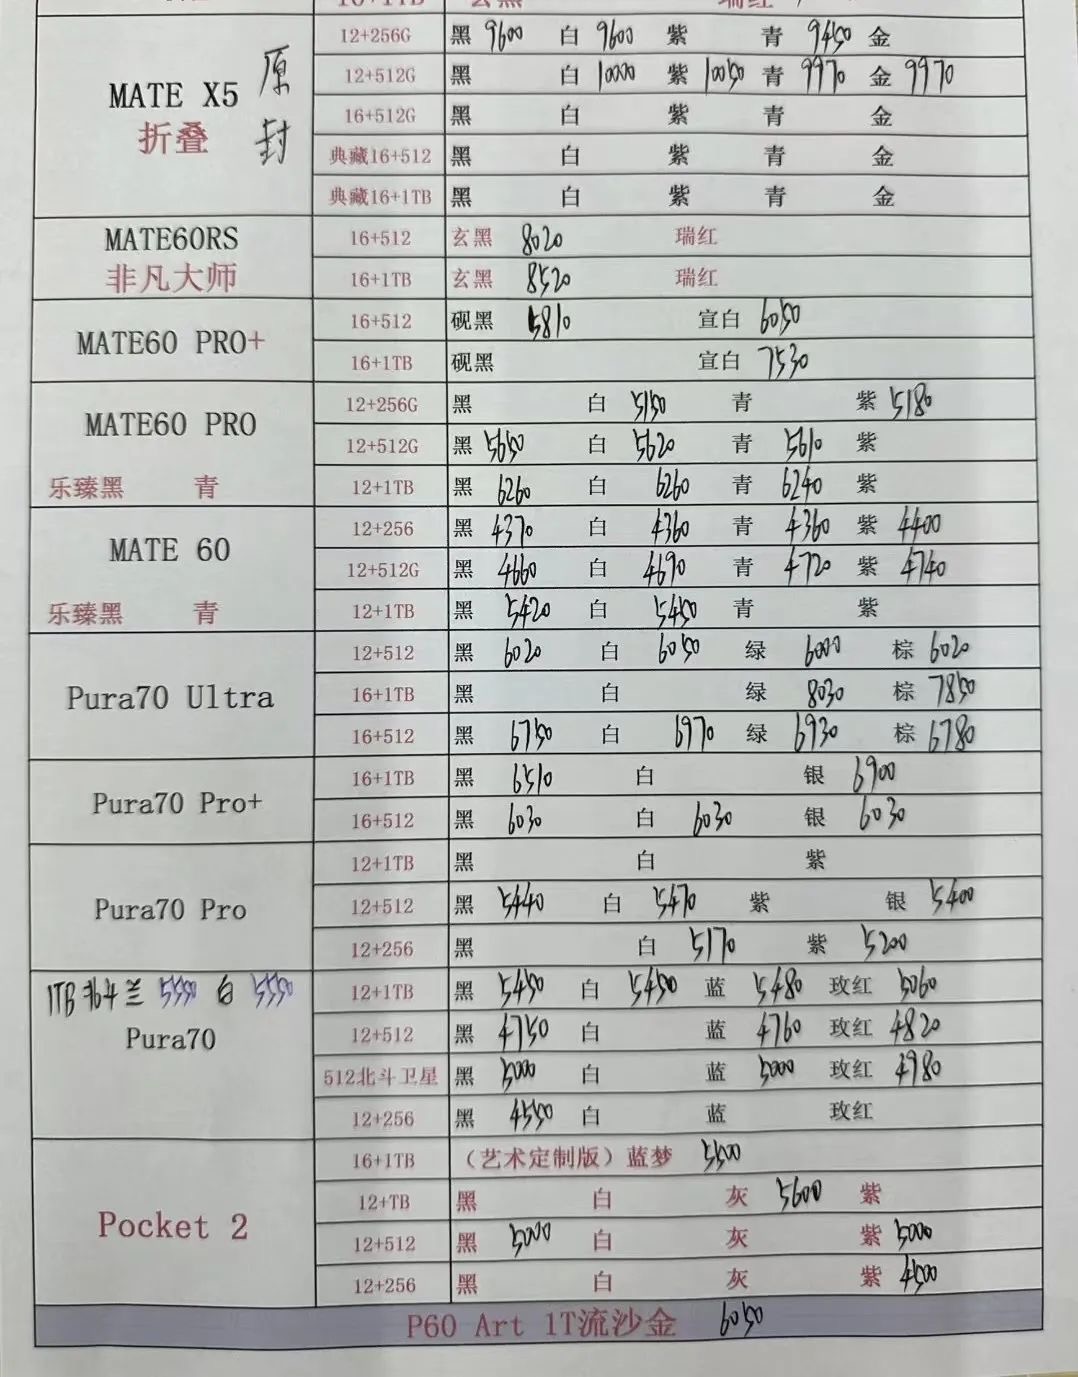 16+1TB 玄黑 瑞红
MATE X5 折叠 原封
12+256G 黑 9600 白 9600 紫 青 9450 金
12+512G 黑 白 10000 紫 10050 青 9970 金 9970
16+512G 黑 白 紫 青 金
典藏16+512 黑 白 紫 青 金
典藏16+1TB 黑 白 紫 青 金
MATE60RS 非凡大师
16+512 玄黑 8020 瑞红
16+1TB 玄黑 8520 瑞红
MATE60 PRO+
16+512 砚黑 5810 宣白 6050
16+1TB 砚黑 宣白 7530
MATE60 PRO
乐臻黑 青
12+256G 黑 白 5150 青 紫 5180
12+512G 黑 5650 白 5620 青 5610 紫
12+1TB 黑 6260 白 6260 青 6240 紫
MATE 60
乐臻黑 青
12+256 黑 4370 白 4360 青 4360 紫 4400
12+512G 黑 4660 白 4690 青 4720 紫 4740
12+1TB 黑 5420 白 5450 青 紫
Pura70 Ultra
12+512 黑 6020 白 6050 绿 6000 棕 6020
16+1TB 黑 白 绿 8030 棕 7850
16+512 黑 6750 白 6970 绿 6930 棕 6780
Pura70 Pro+
16+1TB 黑 6510 白 银 6900
16+512 黑 6030 白 6030 银 6030
Pura70 Pro
12+1TB 黑 白 紫
12+512 黑 5440 白 5470 紫 银 5400
12+256 黑 白 5170 紫 5200
1TB 北斗兰 5550 白 5550
Pura70
12+1TB 黑 5450 白 5450 蓝 5480 玫红 5060
12+512 黑 4750 白 蓝 4760 玫红 4820
512北斗卫星 黑 5000 白 蓝 5000 玫红 4980
12+256 黑 4550 白 蓝 玫红
Pocket 2
16+1TB （艺术定制版）蓝梦 5500
12+TB 黑 白 灰 5600 紫
12+512 黑 5000 白 灰 紫 5000
12+256 黑 白 灰 紫 4500
P60 Art 1T流沙金 6050